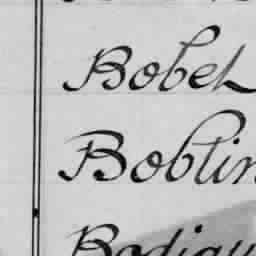 Bobet
Boblin
Bodigu